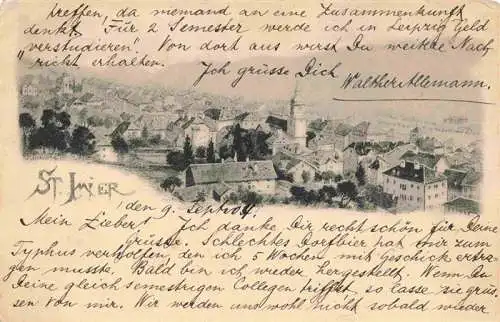 treffen, da niemand an eine Zusammenkunft
denkt. Für 2 Semester werde ich in Leipzig Geld
"verstudieren". Von dort aus wirst Du weitere Nach
richt erhalten.
Ich grüsse Dich
Walther Allemann.
ST. IMIER
den 9. Sept. 04.
Mein Liebert! Ich danke Dir recht schön für Deine
Grüsse. Schlechtes Dorfbier hat mir zum
Typhus verholfen, den ich 5 Wochen mit Geschick ertra-
gen musste. Bald bin ich wieder hergestellt. Wenn Du
Deine gleichsemestrigen Collegen triffst, so lasse sie grüs
sen von mir. Wir werden uns wohl nicht sobald wieder